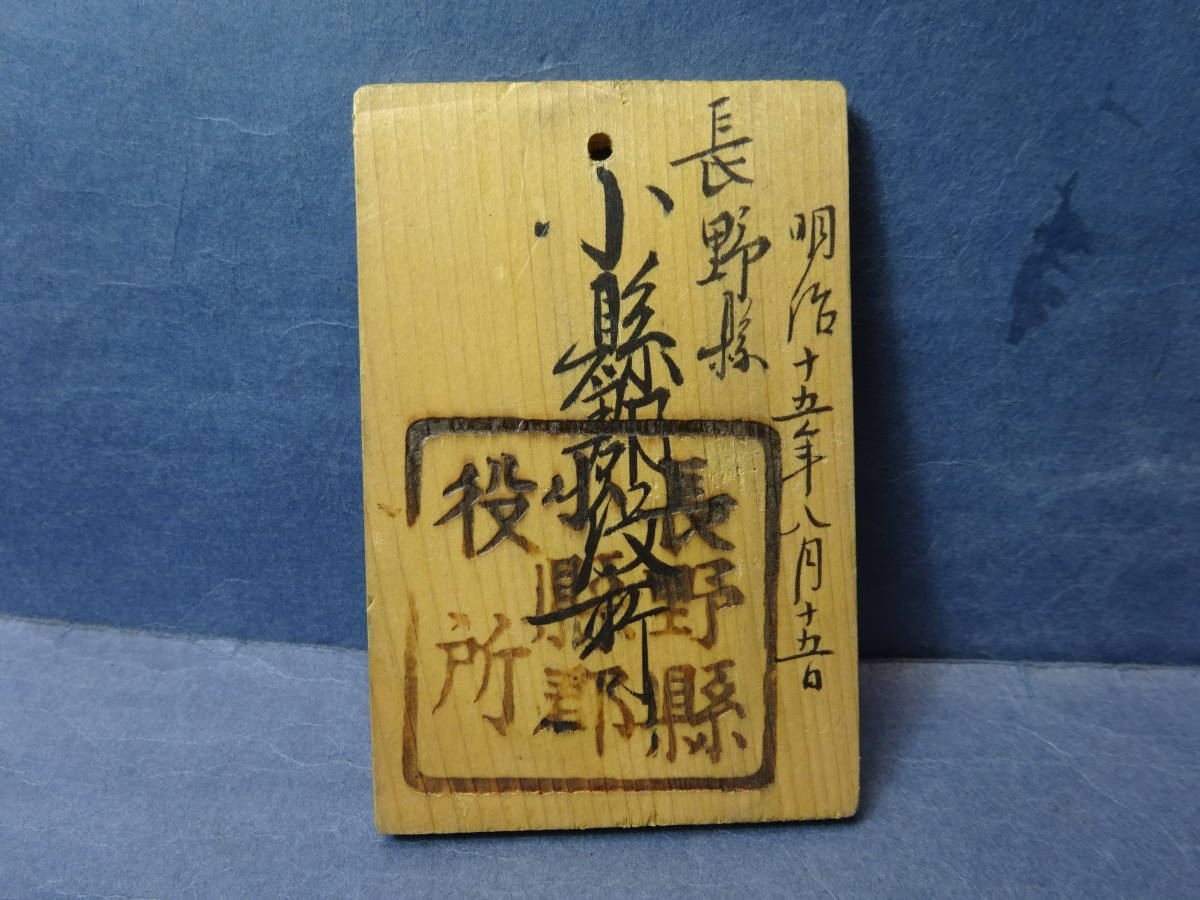 明治十五年八月十五日
長野縣
小縣郡役所
長野縣
小縣郡
役所